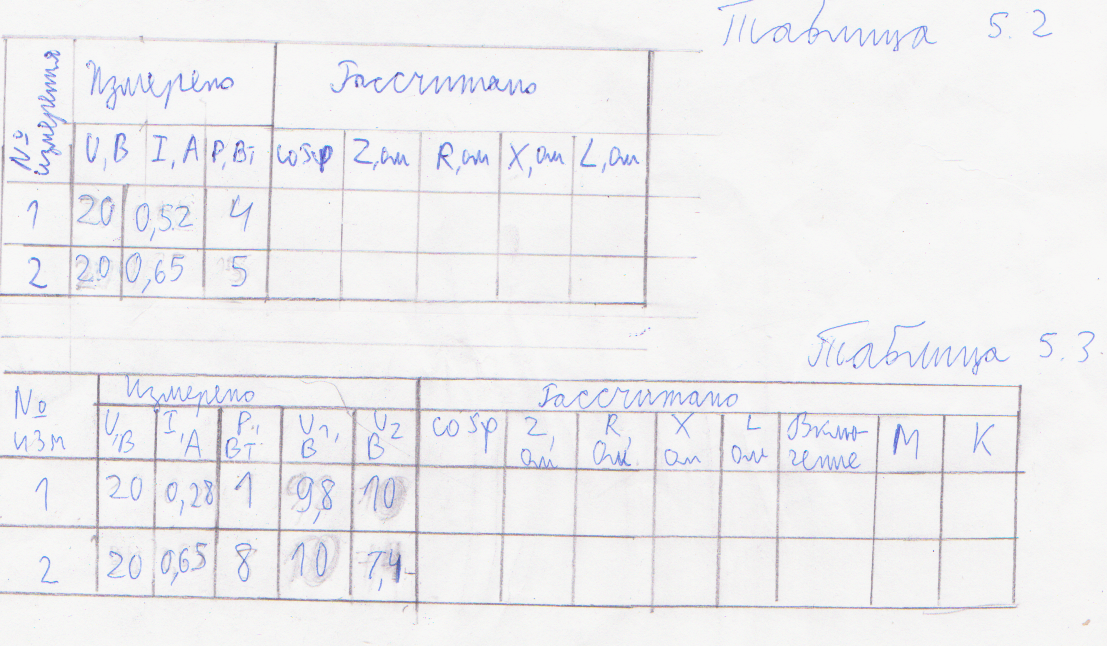 Таблица 5.2
№ измерения Измерено Рассчитано
U, В I, А P, Вт cosφ Z, ом R, ом X, ом L, ом
1 20 0,52 4
2 20 0,65 5
Таблица 5.3.
№ изм Измерено Рассчитано
U, В I, А P, Вт U1, В U2 В cosφ Z, ом R, ом X ом L ом Включение M K
1 20 0,28 1 9,8 10
2 20 0,65 8 10 7,4